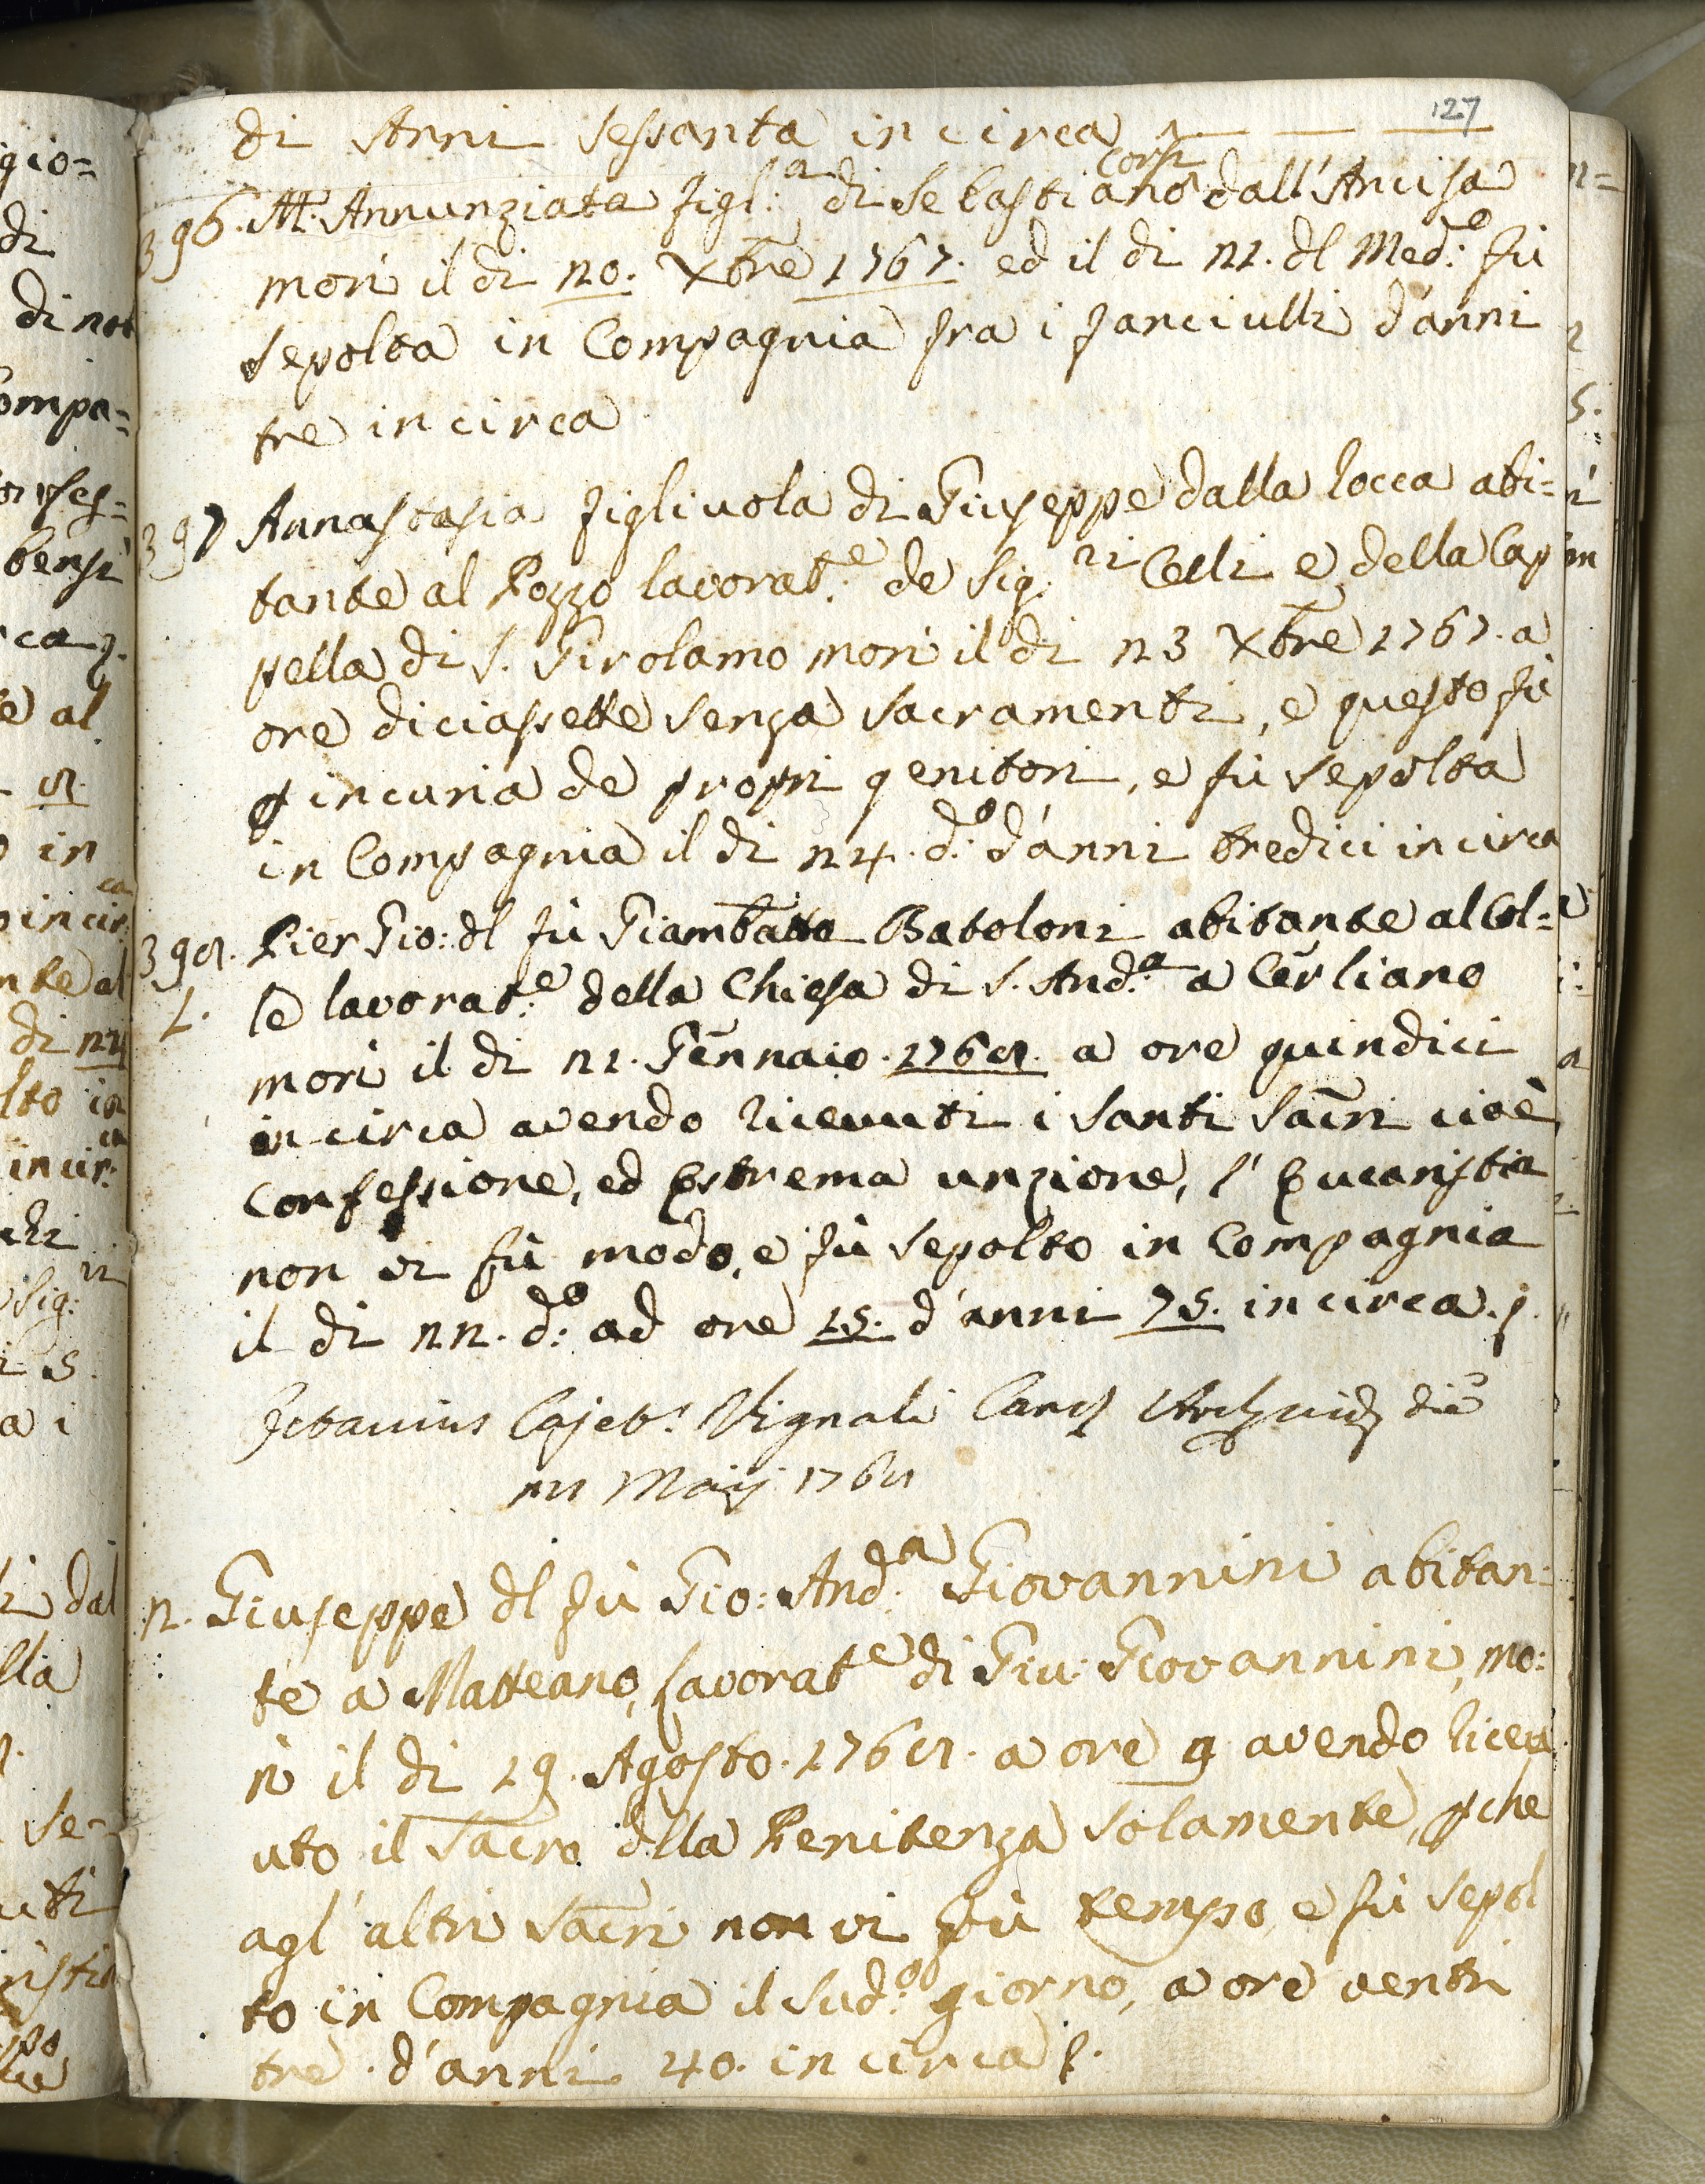 127
di Anni Sessanta in circa
396. M. Annunziata figl:a di Sebastiano Corsi dall'Ancisa
morì il di 20. Xbre 1767. ed il di 21. dl Med:e fù
Sepolta in Compagnia fra i fanciulli d'anni
tre in circa
397 Annastasia figliuola di Giuseppe dalla Rocca abi=
tante al Pozzo lavorat:e de Sig:ri Celli e della Cap
pella di S. Girolamo morì il di 23 Xbre 1767. a
ore diciassette senza Sacramenti, e questo fù
p incuria de propri genitori, e fù Sepolta
in Compagnia il di 24. d:o d'anni tredici in circa
398. Pier Gio: dl fù Giambatta Batoloni abitante al Col=
L. le lavorat:e della Chiesa di S. And:a a Cerliano
morì il di 21. Gennaio. 1768. a ore quindici
in circa avendo ricevuti i Santi Sacri cioè
Confessione, ed Estrema unzione, l'Eucaristia
non vi fù modo, e fù Sepolto in Compagnia
il di 22. d:o ad ore 15. d'anni 75. in circa.
Vignali
Maij 1768
2. Giuseppe dl fù Gio: And:a Giovannini abitan:
te a Matteano, lavorat:e di Giu: Giovannini, mo:
rì il di 19. Agosto. 1768. a ore 9 avendo ricev
uto il Sacro dlla Penitenza Solamente, pche
agl'altri Sacri non vi fù tempo, e fù Sepol
to in Compagnia il Sud:o giorno, a ore venti
tre. d'anni 40. in circa